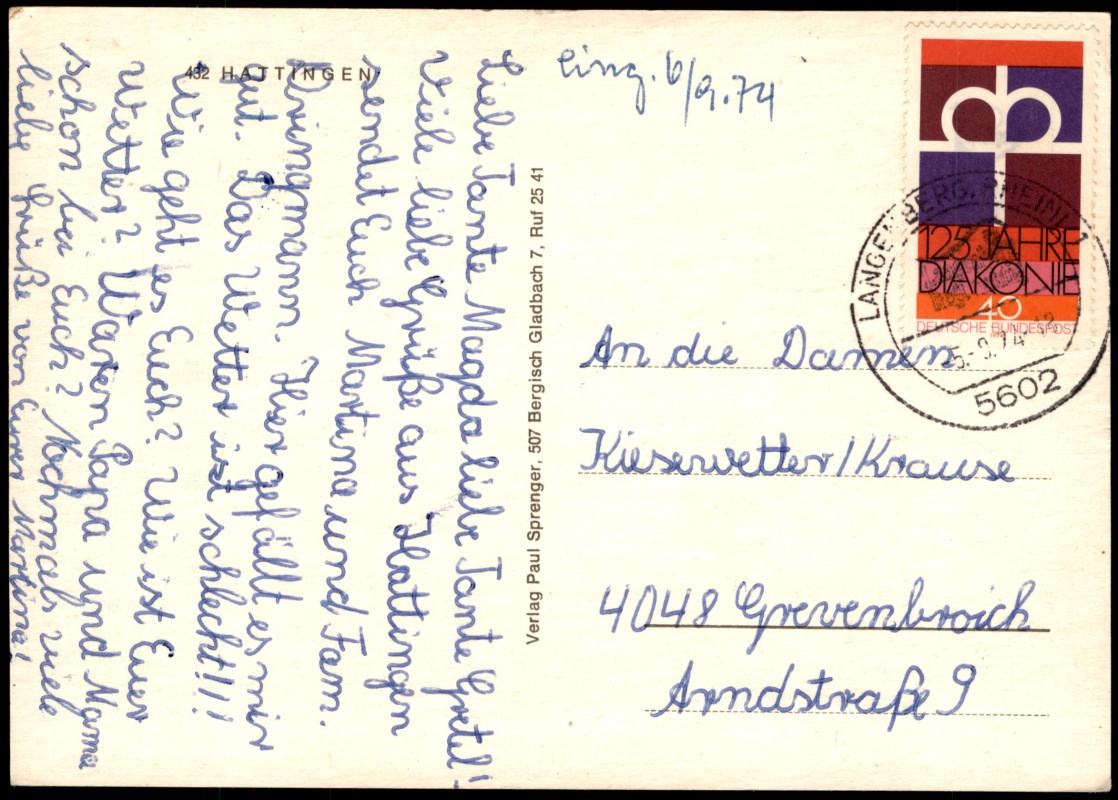 432 HATTINGEN
Liebe Tante Magda liebe Tante Gretel!
Viele liebe Grüße aus Hattingen
sendet Euch Martina und Fam.
Dringmann. Hier gefällt es mir
gut. Das Wetter ist schlecht!!!
Wie geht es Euch? Wie ist Euer
Wetter? Waren Papa und Mama
schon bei Euch? Nochmals viele
liebe Grüße von Eurer Martina!
Verlag Paul Sprenger, 507 Bergisch Gladbach 7, Ruf 25 41
eing. 6/9.74
125 JAHRE
DIAKONIE
40
DEUTSCHE BUNDESPOST
LANGENBERG, RHEINL 1
5.-9.74
5602
An die Damen
Kieserwetter/Krause
4048 Grevenbroich
Arndstraße 9